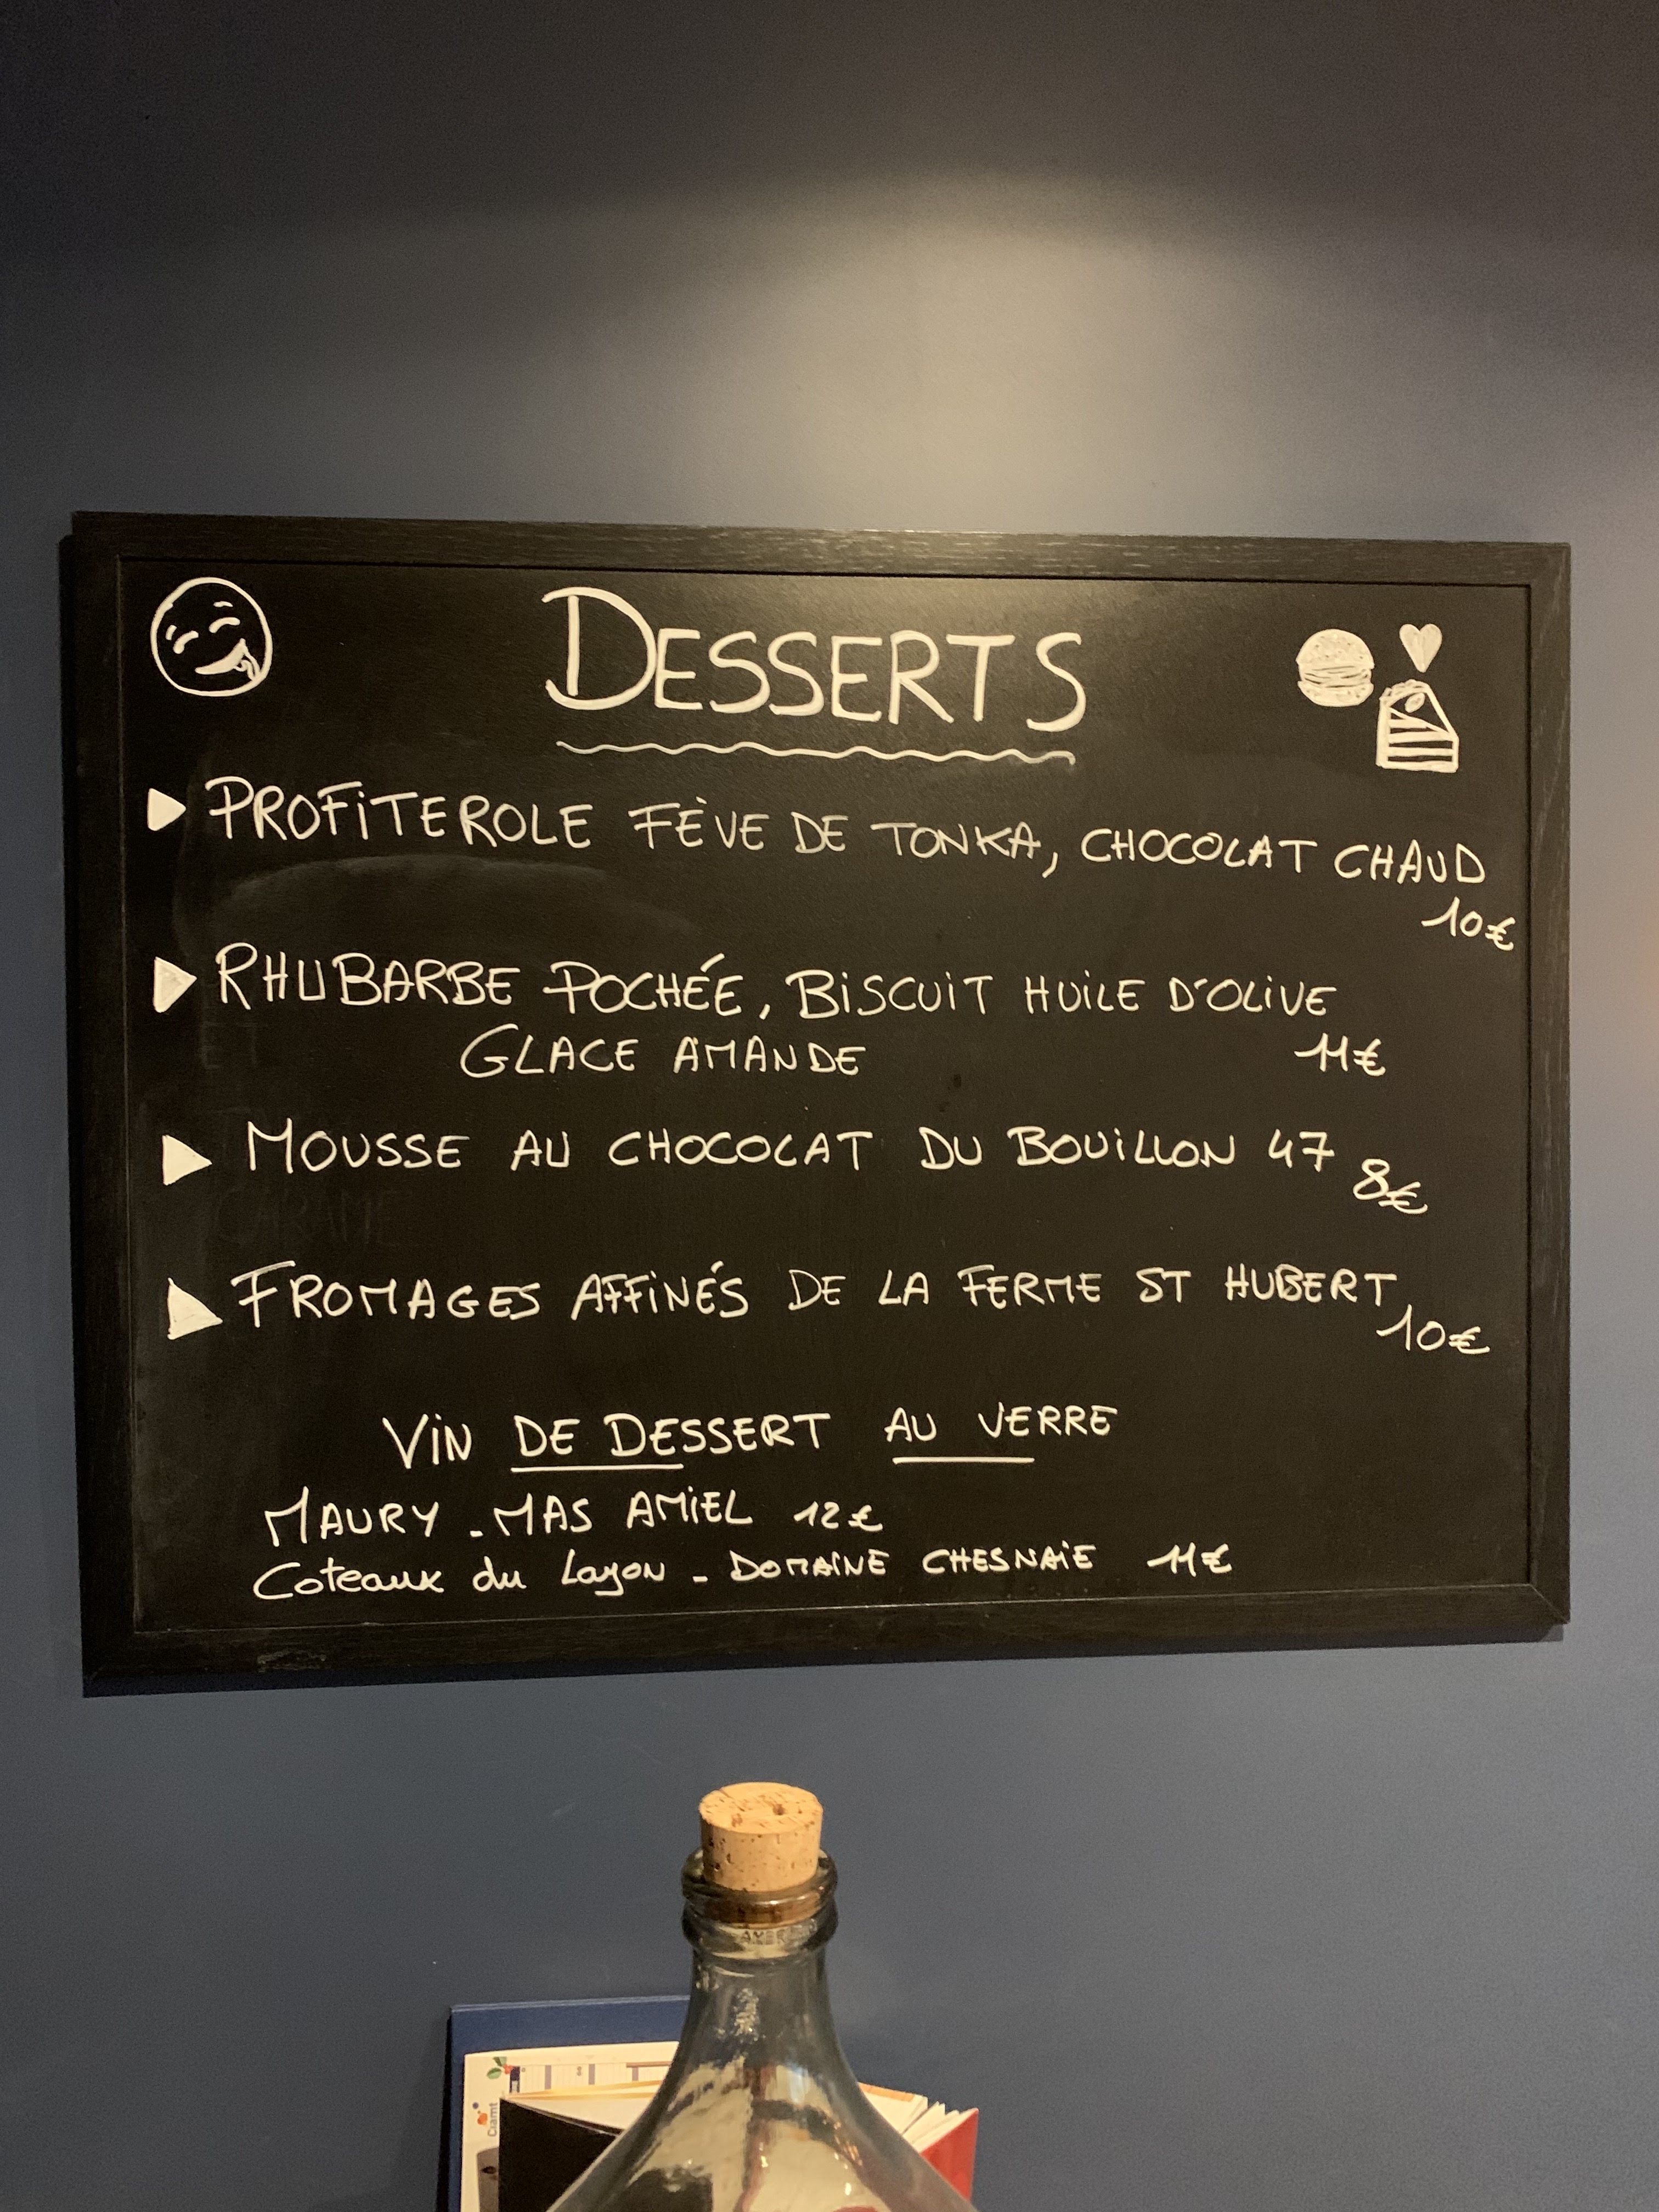 DESSERTS
PROFiTEROLE FÈVE DE TONKA, CHOCOLAT CHAUD
10€
RHUBARBE POCHÉE, BiSCUiT HUiLE D'OLiVE
GLACE AMANDE 11€
MOUSSE AU CHOCOLAT DU BOUiLLON 47
8€
FROMAGES AFFiNÉS DE LA FERME ST HUBERT
10€
ViN DE DESSERT AU VERRE
MAURY - MAS AMiEL 12€
Coteaux du Layon - DOMAiNE CHESNAiE 11€
Ciamt